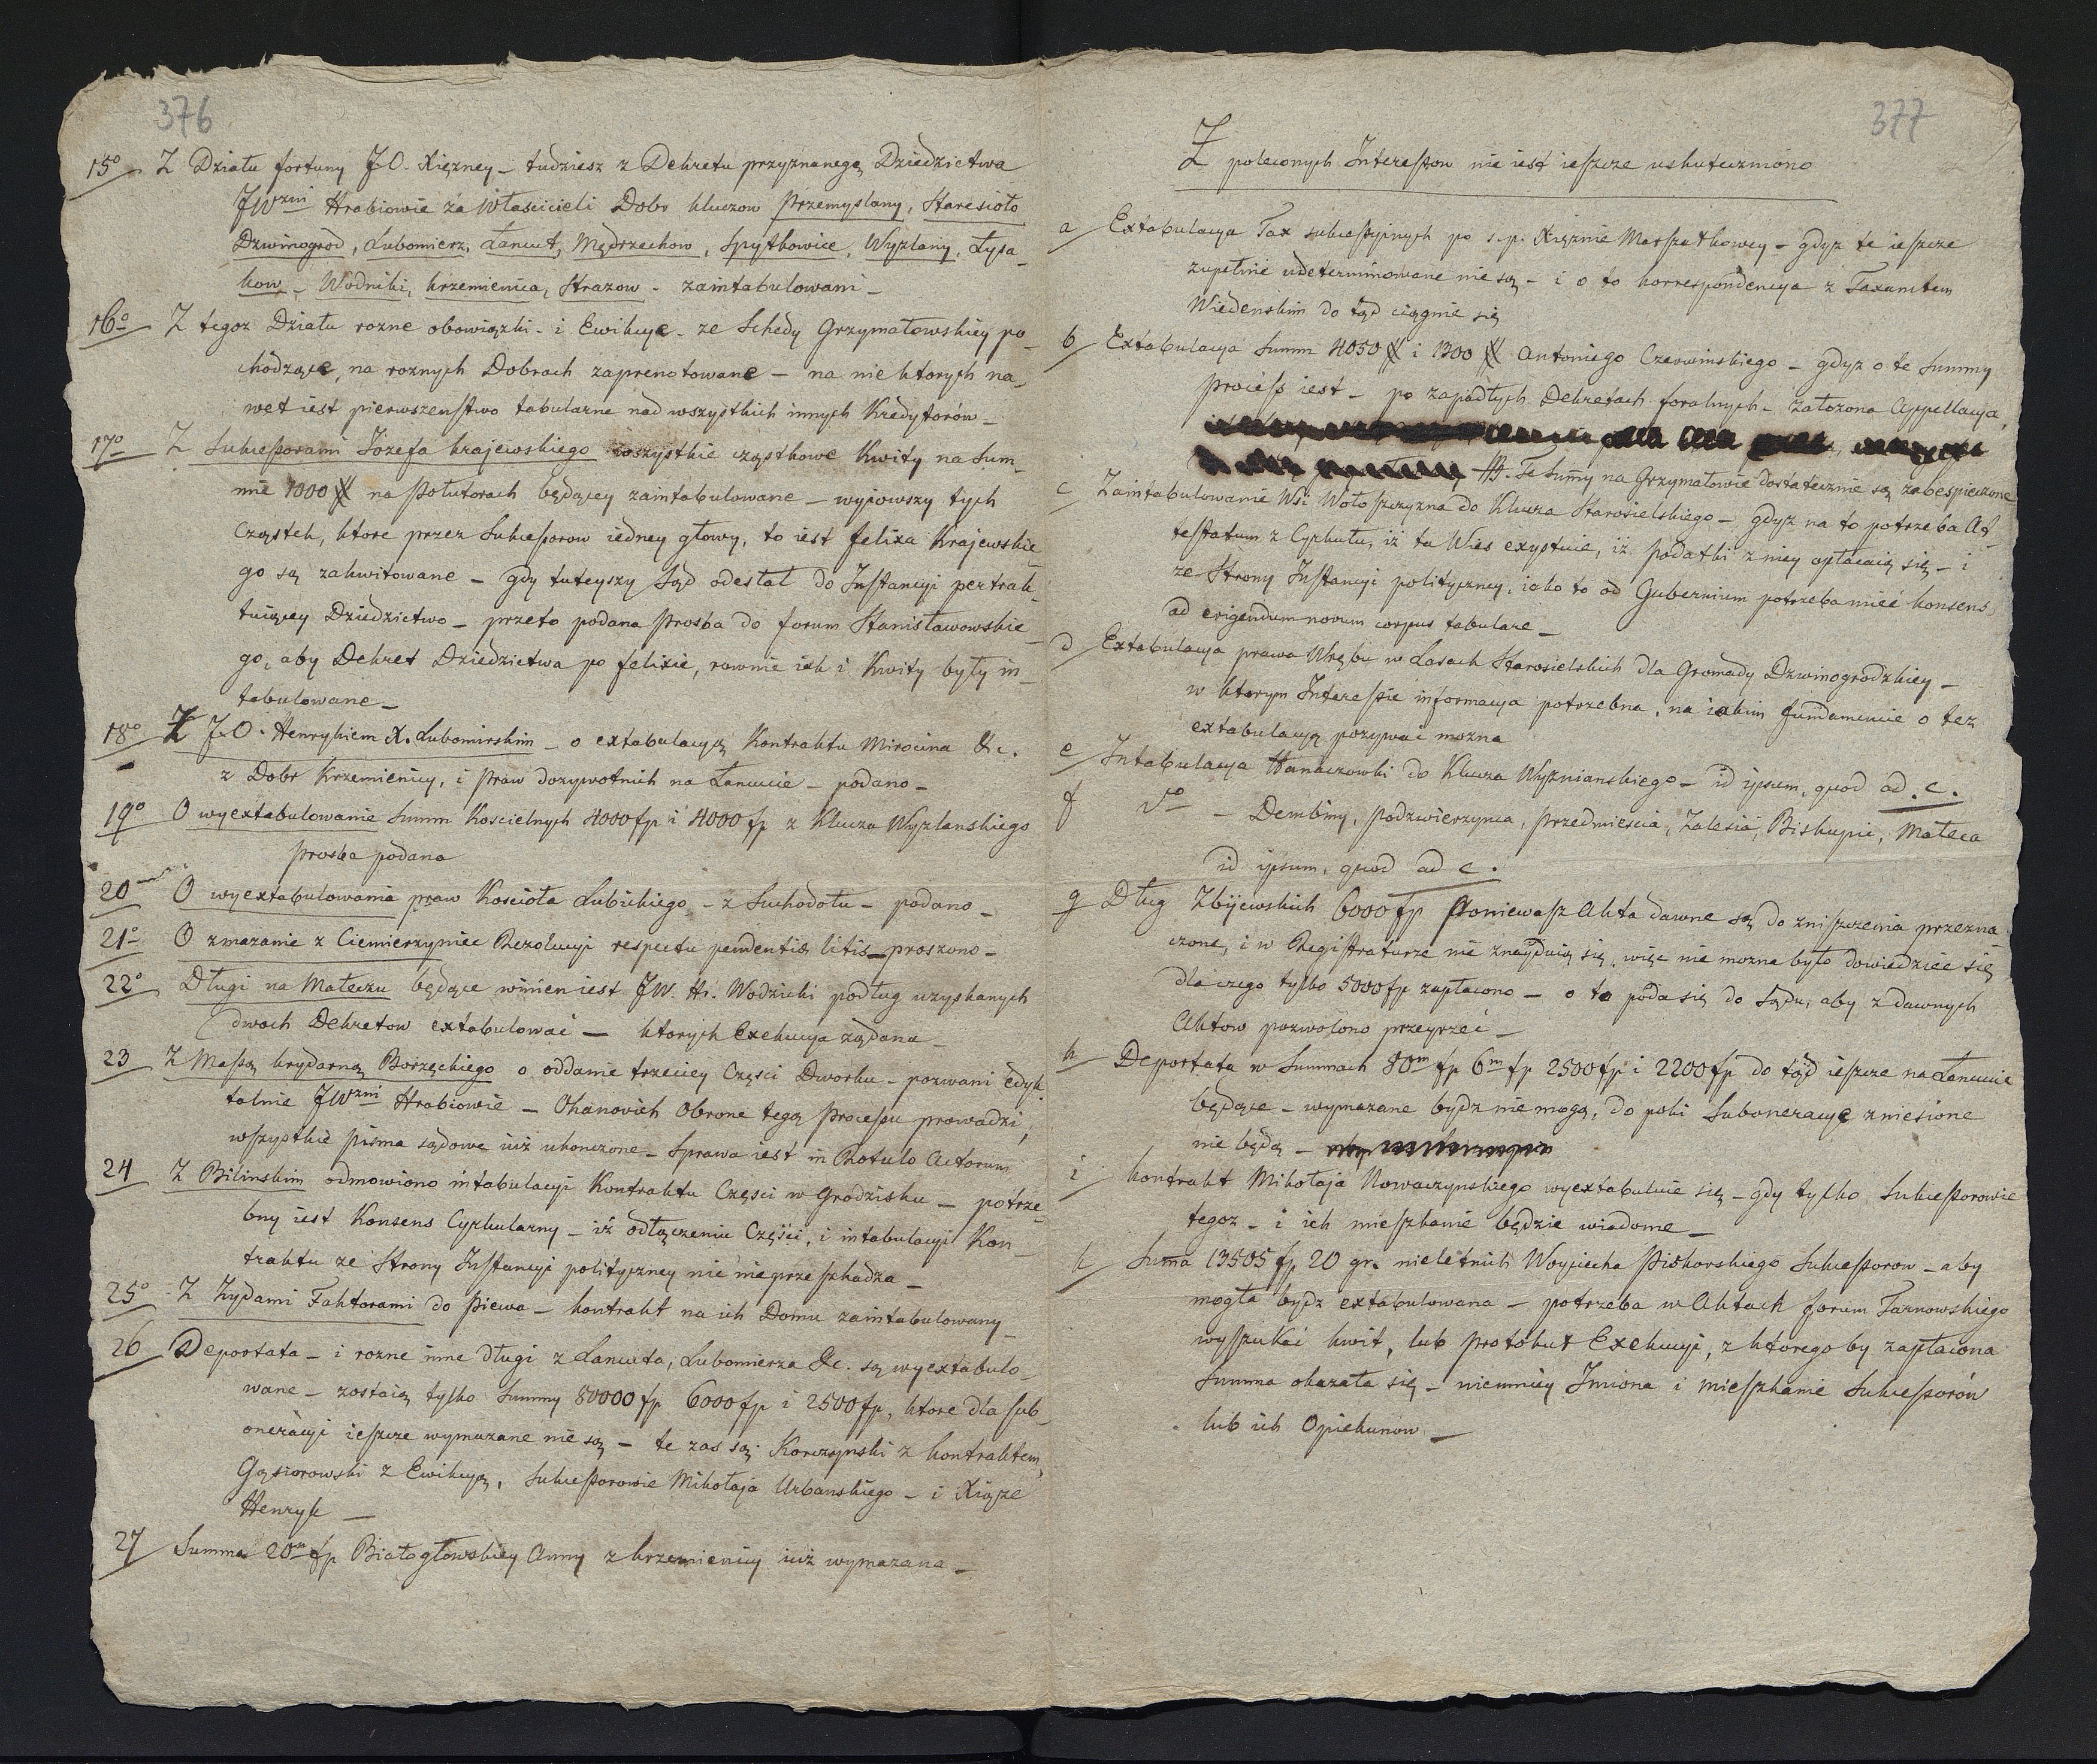 376
15o Z Działu fortuny JO. Xiężney – tudziesz z Dekretu przyznanego Dziedzictwa
JWzni Hrabiowie za Właścicieli Dobr kluczow Przemyslany, Staresioło
Dzwinogrod, Lubomierz, Łancut, Mędrzechow, Spytkowice, Wyżlany, Łysa–
kow – Wodniki, krzemienica, Strazow – zaintabulowani –
16o Z tegoz Działu rozne obowiązki – i Ewikcye – ze Schedy Grzymałowskiey po–
chodzące, na roznych Dobrach zaprenotowane – na niektorych na–
wet iest pierwszeństwo tabularne nad wszystkich innych Kredytorów –
17o Z Sukcessorami Józefa krajewskiego wszystkie cząstkowe Kwity na Sum–
mie 1000 # na Połutorach będącey zaintabulowane – wyiowszy tych
Cząstek, ktore przez Sukcessorow iedney głowy, to iest felixa Krajewskie–
go są zakwitowane – gdy tuteyszy Sąd odesłał do Instancyi pertrak–
tuiącey Dziedzictwo – przeto podana Prosba do forum Stanisławowskie–
go, aby Dekret Dziedzictwa po felixie, rownie iak i Kwity były in–
tabulowane –
18o Z J.O. Henrykiem X. Lubomirskim – o extabulacyą Kontraktu Mirocina &c.
z Dobr Krzemienicy, i Praw dozywotnich na Łancucie – podano –
19o O wyextabulowanie Summ Koscielnych 4000 fp i 4000 fp z Klucza Wyzlanskiego
prosba podana
20 O wyextabulowania praw Kościoła Lubickiego – z Suchodołu – podano –
21o O zmazanie z Ciemierzyniec Rezolucyi respectu pendentis litis – proszono –
22o Długi na Małeczu będące winien iest JW. Hr. Wodzicki podług uzyskanych
dwoch Dekretow extabulowac – ktorych Exekucya żądana –
23 Z Massą krydarną Borzęckiego o oddanie trzeciey Częsci Dworku – pozwani edyk–
talnie JWzni Hrabiowie – Ohanovich Obrone tego Processu prowadzi,
wszystkie pisma sądowe iuż ukonczone – Sprawa iest in Rotulo Actorum
24 Z Bilinskim odmowiono intabulacyi Kontraktu Częsci w Grodzisku – potrze–
bny iest Konsens Cyrkularny – iż odłączeniu Częsci, i intabulacyi Kon–
traktu ze Strony Instancyi polityczney nic nieprzeszkadza –
25o Z Żydami Faktorami do Piewa – kontrakt na ich Domu zaintabulowany –
26 Deportata – i rozne inne długi z Lancuta, Lubomierza &c. są wyextabulo–
wane – zostaią tylko Summy 80000 fp 6000 fp i 2500 fp, ktore dla sub–
oneracyi ieszcze wymazane nie są – te zas są: Korczynski z kontraktem,
Gąsiorowski z Ewikcyą, Sukcessorowie Mikołaja Urbanskiego – i Xiąże
Henryk –
27 Summa 20m fp Białogłowskiey Anny z krzemienicy iuż wymazana –
377
Z poleconych Interessow nie iest ieszcze uskuteczniono
a Extabulacya Tax sukcessyinych po s.p. Xiężnie Marszałkowey – gdyz te ieszcze
zupełnie udeterminowane nie są – i o to korrespondencya z Taxamtem
Wiedenskim do tąd ciągnie się
b Extabulacya Summ 4050 # i 1300 # Antoniego Czerwinskiego – gdyz o te Summy
process iest – po zapadłych Dekretach foralnych – założona Appellacya,
NB. Te Sumy na Grzymałowie dostatecznie są zabespieczone
c Zaintabulowanie Wsi Wołoszczyzna do Klucza Starosielskiego – gdyz na to potrzeba At–
testatum z Cyrkułu, iż ta Wies exystuie, iż podatki z niey opłacaią się – i
ze Strony Instancyi polityczney, iako to od Gubernium potrzeba mieć konsens
ad erigendum novum corpus tabulare –
d Extabulacya prawa Wrębu w Lasach Starosielskich dla Gromady Dzwinogrodzkiey –
w ktorym Interessie informacya potrzebna, na iakim fundamencie o tez
extabulacyą pozywać mozna
e Intabulacya Hanaczowki do Klucza Wyznianskiego – id ipsum, quod ad .c.
f do – Dembiny, Podzwierzynca, Przedmiescia, Zalesia, Biskupic, Małecza
id ipsum, quod ad c.
g Dług Zbijewskich 6000 fp Poniewasz Akta dawne są do zniszczenia przezna–
czone, i w Registraturze nie znayduią się, więc nie mozna było dowiedziec się
dla czego tylko 5000 fp zapłacono – o to poda się do Sądu, aby z dawnych
Aktow pozwolono przeyrzeć –
h Deportata w Summach 80m fp 6m fp 2500 fp i 2200 fp do tąd ieszcze na Łancucie
będące – wymazane bydz nie mogą, do poki Suboneracye zniesione
nie będą –
i kontrakt Mikołaja Nowaczynskiego wyextabuluie się – gdy tylko Sukcessorowie
tegoz – i ich mieszkanie będzie wiadome –
k Suma 13505 fp 20 gr. nieletnich Woyciecha Piskorskiego Sukcessorow – aby
mogła bydz extabulowana – potrzeba w Aktach forum Tarnowskiego
wyszukać kwit, lub protokuł Exekucyi, z ktorego by zapłacona
Summa okazała się – niemniey Imiona i mieszkanie Sukcessorów
lub ich Opiekunow –